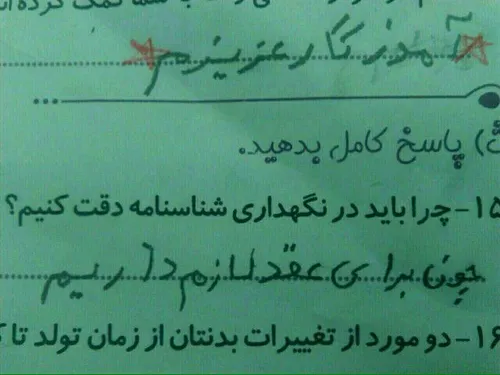 با شما کمک کرده اند
آموزگار عزیزم
ث) پاسخ کامل بدهید.
۱۵- چرا باید در نگهداری شناسنامه دقت کنیم؟
چون برای عقد لازم داریم
۱۶- دو مورد از تغییرات بدنتان از زمان تولد تا